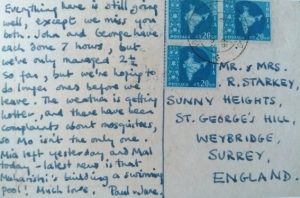 Everything here is still going
well, except we miss you
both. John and George have
each some 7 hours, but
we've only managed 2½
so far, but we're hoping to
do longer ones before we
leave. The weather is getting
hotter, and there have been
complaints about mosquitoes,
so Mo isn't the only one.
Mia left yesterday, and Mal
today - latest news is that
Maharishi's building a swimming
pool! Much love, Paul Jane.
MR. & MRS.
R. STARKEY,
SUNNY HEIGHTS,
ST. GEORGE'S HILL,
WEYBRIDGE,
SURREY,
ENGLAND.